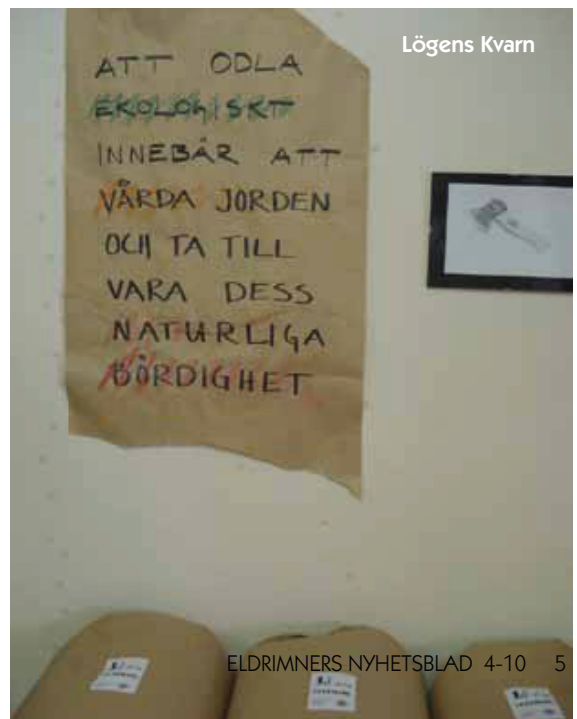 Lögens Kvarn
ATT ODLA
EKOLOGISKT
INNEBÄR ATT
VÅRDA JORDEN
OCH TA TILL
VARA DESS
NATURLIGA
BÖRDIGHET
ELDRIMNERS NYHETSBLAD 4-10 5